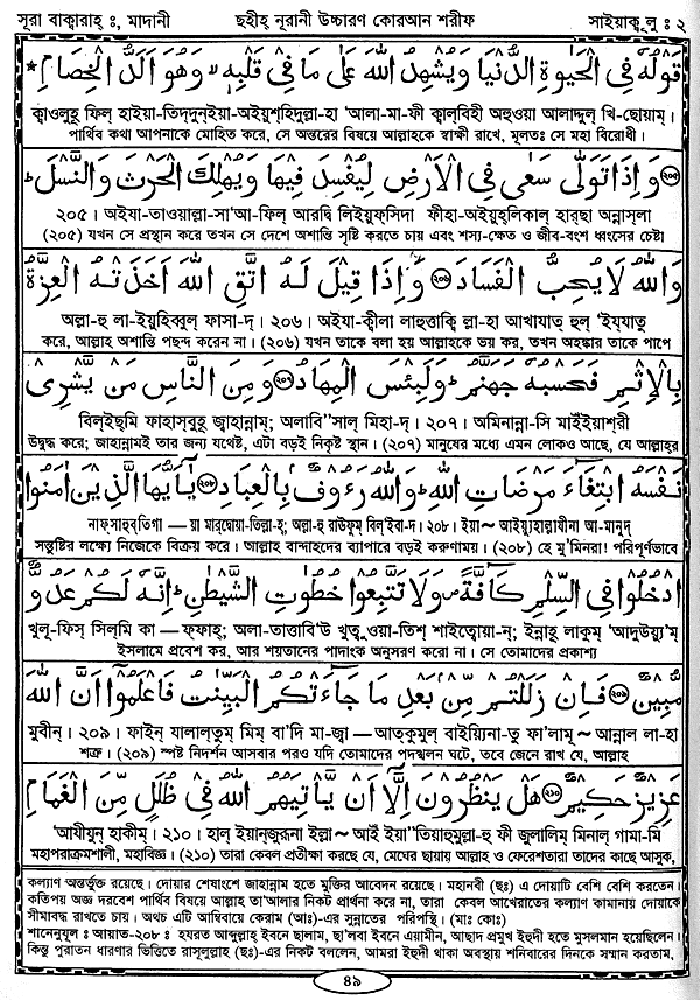 সূরা বাক্বারাহ্ ঃ, মাদানী ছহীহ্ নূরানী উচ্চারণ কোরআন শরীফ সাইয়াক্বূলু ঃ ২
قَوْلُهٗ فِى الْحَيٰوةِ الدُّنْيَا وَيُشْهِدُ اللّٰهَ عَلٰى مَا فِىْ قَلْبِهٖ ۙ وَهُوَ اَلَدُّ الْخِصَامِ *
ক্বাওলুহূ ফিল্ হাইয়া-তিদ্‌দুন্‌ইয়া-অইয়ুশ্‌হিদুল্লা-হা 'আলা-মা-ফী ক্বাল্‌বিহী অহুওয়া আলাদ্দুল্ খি-ছোয়াম্।
পার্থিব কথা আপনাকে মোহিত করে, সে অন্তরের বিষয়ে আল্লাহকে স্বাক্ষী রাখে, মূলতঃ সে মহা বিরোধী।
২০৫ وَاِذَا تَوَلّٰى سَعٰى فِى الْاَرْضِ لِيُفْسِدَ فِيْهَا وَيُهْلِكَ الْحَرْثَ وَالنَّسْلَ ؕ
২০৫। অইযা-তাওয়াল্লা-সা'আ-ফিল্ আরদ্বি লিইয়ুফ্‌সিদা ফীহা-অইয়ুহ্‌লিকাল্ হার্‌ছা অন্নাস্‌লা
(২০৫) যখন সে প্রস্থান করে তখন সে দেশে অশান্তি সৃষ্টি করতে চায় এবং শস্য-ক্ষেত ও জীব-বংশ ধ্বংসের চেষ্টা
وَاللّٰهُ لَا يُحِبُّ الْفَسَادَ ২০৬ وَاِذَا قِيْلَ لَهُ اتَّقِ اللّٰهَ اَخَذَتْهُ الْعِزَّةُ
অল্লা-হু লা-ইয়ুহিব্বুল্ ফাসা-দ্। ২০৬। অইযা-ক্বীলা লাহুত্তাক্বি ল্লা-হা আখাযাত্ হুল্ 'ইয্‌যাতু
করে, আল্লাহ অশান্তি পছন্দ করেন না। (২০৬) যখন তাকে বলা হয় আল্লাহকে ভয় কর, তখন অহঙ্কার তাকে পাপে
بِالْاِثْمِ فَحَسْبُهٗ جَهَنَّمُ ؕ وَلَبِئْسَ الْمِهَادُ ২০৭ وَمِنَ النَّاسِ مَنْ يَّشْرِىْ
বিল্‌ইছ্‌মি ফাহাস্‌বুহূ জ্বাহান্নাম্; অলাবি''সাল্ মিহা-দ্। ২০৭। অমিনান্না-সি মাইঁইয়াশ্‌রী
উদ্বুদ্ধ করে; জাহান্নামই তার জন্য যথেষ্ট, এটা বড়ই নিকৃষ্ট স্থান। (২০৭) মানুষের মধ্যে এমন লোকও আছে, যে আল্লাহ্‌র
نَفْسَهُ ابْتِغَآءَ مَرْضَاتِ اللّٰهِ ؕ وَاللّٰهُ رَءُوْفٌۢ بِالْعِبَادِ ২০৮ يٰۤاَيُّهَا الَّذِيْنَ اٰمَنُوا
নাফ্‌সাহুব্‌তিগা — য়া মার্‌দ্বোয়া-তিল্লা-হ্; অল্লা-হু রাঊফুম্ বিল্‌'ইবা-দ। ২০৮। ইয়া ~ আইয়্যুহাল্লাযীনা আ-মানুদ্
সন্তুষ্টির লক্ষ্যে নিজেকে বিক্রয় করে। আল্লাহ বান্দাহদের ব্যাপারে বড়ই করুণাময়। (২০৮) হে মু'মিনরা! পরিপূর্ণভাবে
ادْخُلُوْا فِى السِّلْمِ كَآفَّةً ۪ وَلَا تَتَّبِعُوْا خُطُوٰتِ الشَّيْطٰنِ ؕ اِنَّهٗ لَكُمْ عَدُوٌّ
খুলূ-ফিস্ সিল্‌মি কা — ফ্‌ফাহ্; অলা-তাত্তাবি'উ খুত্বু ওয়া-তিশ্ শাইত্বোয়া-ন্; ইন্নাহূ লাকুম্ 'আদুউয়্যুম্
ইসলামে প্রবেশ কর, আর শয়তানের পাদাংক অনুসরণ করো না। সে তোমাদের প্রকাশ্য
مُّبِيْنٌ ২০৯ فَاِنْ زَلَلْتُمْ مِّنْۢ بَعْدِ مَا جَآءَتْكُمُ الْبَيِّنٰتُ فَاعْلَمُوْٓا اَنَّ اللّٰهَ
মুবীন্। ২০৯। ফাইন্ যালাল্‌তুম্ মিম্ বা'দি মা-জ্বা — আত্‌কুমুল্ বাইয়্যিনা-তু ফা'লামূ ~ আন্নাল লা-হা
শত্রু। (২০৯) স্পষ্ট নিদর্শন আসবার পরও যদি তোমাদের পদস্খলন ঘটে, তবে জেনে রাখ যে, আল্লাহ
عَزِيْزٌ حَكِيْمٌ ২১০ هَلْ يَنْظُرُوْنَ اِلَّاۤ اَنْ يَّاْتِيَهُمُ اللّٰهُ فِىْ ظُلَلٍ مِّنَ الْغَمَامِ
'আযীযুন্ হাকীম্। ২১০। হাল্ ইয়ান্‌জুরূনা ইল্লা ~ আইঁ ইয়া''তিয়াহুমুল্লা-হু ফী জুলালিম্ মিনাল্ গামা-মি
মহাপরাক্রমশালী, মহাবিজ্ঞ। (২১০) তারা কেবল প্রতীক্ষা করছে যে, মেঘের ছায়ায় আল্লাহ ও ফেরেশতারা তাদের কাছে আসুক,
কল্যাণ অন্তর্ভূক্ত রয়েছে। দোয়ার শেষাংশে জাহান্নাম হতে মুক্তির আবেদন রয়েছে। মহানবী (ছঃ) এ দোয়াটি বেশি বেশি করতেন।
কতিপয় অজ্ঞ দরবেশ পার্থিব বিষয়ে আল্লাহ তা'আলার নিকট প্রার্থনা করে না, তারা কেবল আখেরাতের কল্যাণ কামানায় দোয়াকে
সীমাবদ্ধ রাখতে চায়। অথচ এটি আম্বিয়ায়ে কেরাম (আঃ)-এর সুন্নাতের পরিপন্থি। (মাঃ কোঃ)
শানেনুযুল ঃ আয়াত-২০৮ ঃ হযরত আব্দুল্লাহ্ ইবনে ছালাম, ছা'লবা ইবনে এয়ামীন, আছাদ প্রমুখ ইহুদী হতে মুসলমান হয়েছিলেন।
কিন্তু পুরাতন ধারণার ভিত্তিতে রাসূলুল্লাহ (ছঃ)-এর নিকট বললেন, আমরা ইহুদী থাকা অবস্থায় শনিবারের দিনকে সম্মান করতাম,
৪৯